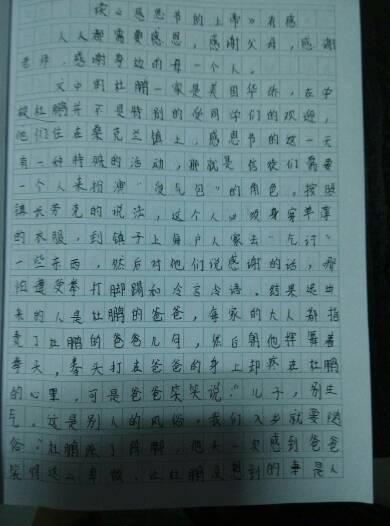 读《感恩节的上帝》有感
人人都需要感恩，感谢父母，感谢
老师，感谢身边的每一个人。
文中的杜鹏一家是美国华侨，在学
校杜鹏并不是特别的受同学们的欢迎，
他们住在桑克兰镇上，感恩节的这一天
有一种特殊的活动，那就是信徒们需要
一个人来扮演"受气包"的角色，按照
镇长劳克的说法，这个人必须身穿单薄
的衣服，到镇子上每户人家去"乞讨"
一些东西，然后对他们说感谢的话，哪
怕遭受拳打脚踢和冷言冷语。结果选出
来的人是杜鹏的爸爸，每家的大人都指
责了杜鹏的爸爸几句，然后朝他挥舞着
拳头，拳头打在爸爸的身上却疼在杜鹏
的心里，可是爸爸笑笑说："儿子，别生
气，这是别人的风俗，我们入乡就要随
俗。"杜鹏 了 ，他头一次感到爸爸
笑 这么 ，让杜鹏没想到的事是人